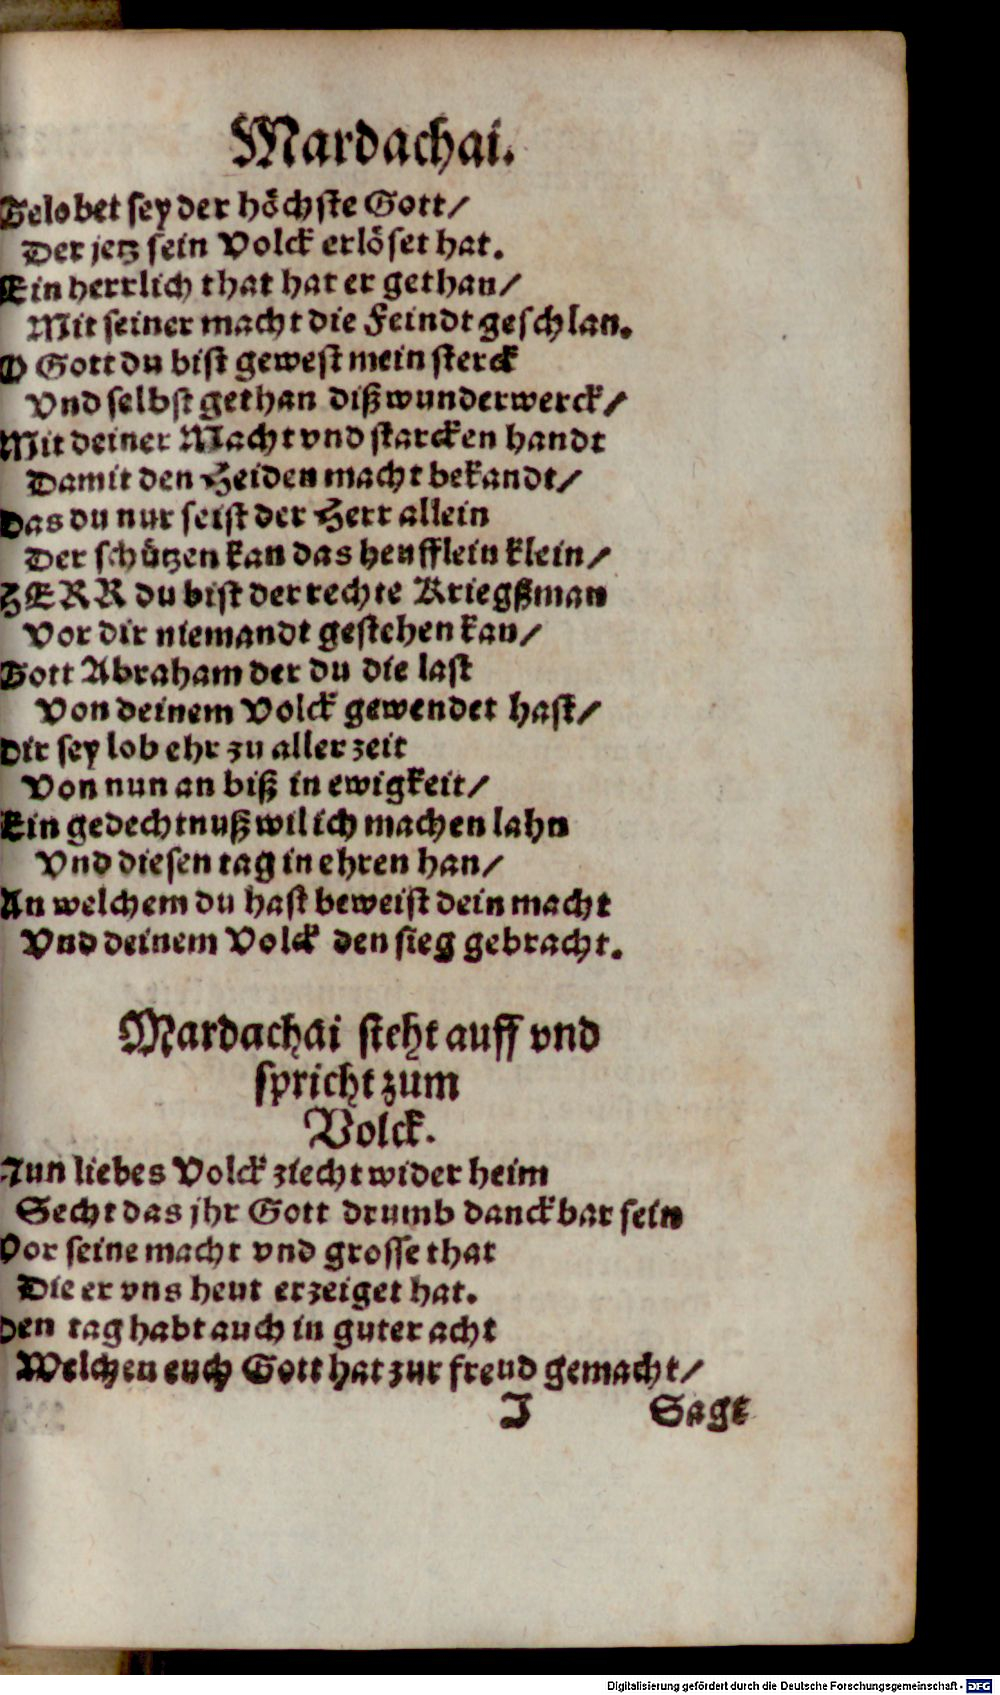 Mardachai.
Gelobet sey der höchste Gott/
Der jetz sein Volck erlöset hat.
Ein herrlich that hat er gethan/
Mit seiner macht die Feindt geschlan.
O Gott du bist gewest mein sterck
Vnd selbst gethan diß wunderwerck/
Mit deiner Macht vnd starcken handt
Damit den Heiden macht bekandt/
Das du nur seist der Herr allein
Der schützen kan das heufflein klein/
HERR du bist der rechte Kriegßman
Vor dir niemandt gestehen kan/
Gott Abraham der du die last
Von deinem Volck gewendet hast/
Dir sey lob ehr zu aller zeit
Von nun an biß in ewigkeit/
Ein gedechtnuß wil ich machen lahn
Vnd diesen tag in ehren han/
An welchem du hast beweist dein macht
Vnd deinem Volck den sieg gebracht.
Mardachai steht auff vnd
spricht zum
Volck.
Nun liebes Volck ziecht wider heim
Secht das jhr Gott drumb danckbar sein
Vor seine macht vnd grosse that
Die er vns heut erzeiget hat.
Den tag habt auch in guter acht
Welchen euch Gott hat zur freud gemacht/
J Sagt
Digitalisierung gefördert durch die Deutsche Forschungsgemeinschaft - DFG